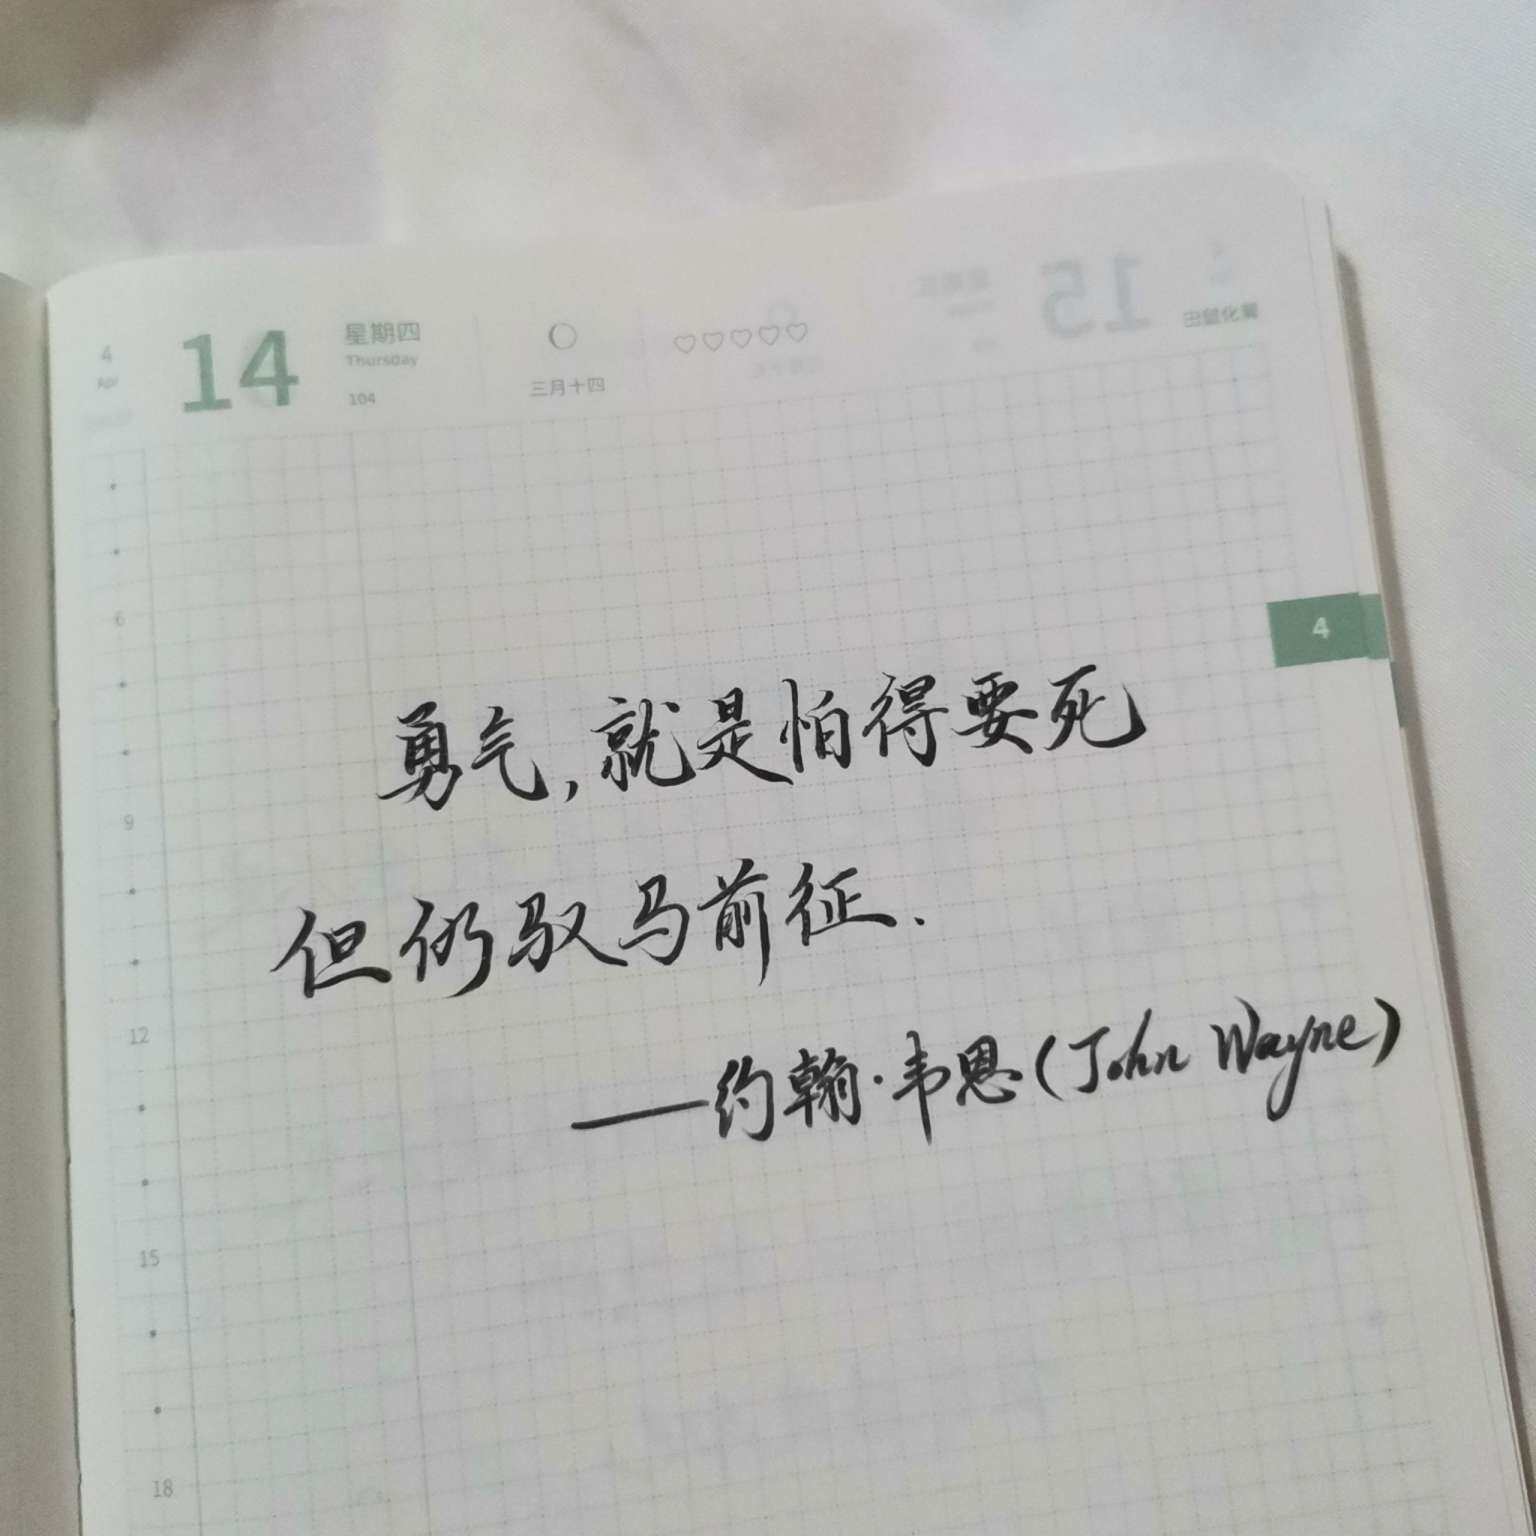 4
Apr
14
星期四
Thursday
104
三月十四
4
6
9
12
15
18
勇气,就是怕得要死
但仍驭马前征.
——约翰·韦恩(John Wayne)